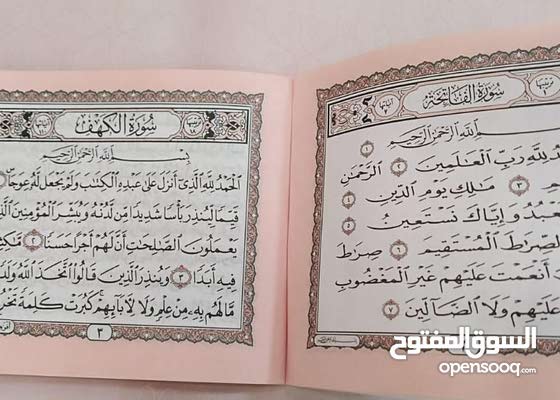 سُورَةُ الفَاتِحَةِ
اللَّهِ الرَّحْمَٰنِ الرَّحِيمِ ١
لِلَّهِ رَبِّ الْعَالَمِينَ ٢ الرَّحْمَٰنِ
٣ مَالِكِ يَوْمِ الدِّينِ ٤
وَإِيَّاكَ نَسْتَعِينُ ٥
الصِّرَاطَ الْمُسْتَقِيمَ ٦ صِرَاطَ
أَنْعَمْتَ عَلَيْهِمْ غَيْرِ الْمَغْضُوبِ
عَلَيْهِمْ وَلَا الضَّالِّينَ ٧
سُورَةُ الكَهْفِ
بِسْمِ اللَّهِ الرَّحْمَٰنِ الرَّحِيمِ
الْحَمْدُ لِلَّهِ الَّذِي أَنزَلَ عَلَىٰ عَبْدِهِ الْكِتَابَ وَلَمْ يَجْعَل لَّهُ عِوَجًا
قَيِّمًا لِّيُنذِرَ بَأْسًا شَدِيدًا مِّن لَّدُنْهُ وَيُبَشِّرَ الْمُؤْمِنِينَ
يَعْمَلُونَ الصَّالِحَاتِ أَنَّ لَهُمْ أَجْرًا حَسَنًا ٢
فِيهِ أَبَدًا ٣ وَيُنذِرَ الَّذِينَ قَالُوا اتَّخَذَ اللَّهُ وَلَدًا
مَّا لَهُم بِهِ مِنْ عِلْمٍ وَلَا لِآبَائِهِمْ كَبُرَتْ كَلِمَةً
٣
السوق المفتوح
opensooq.com